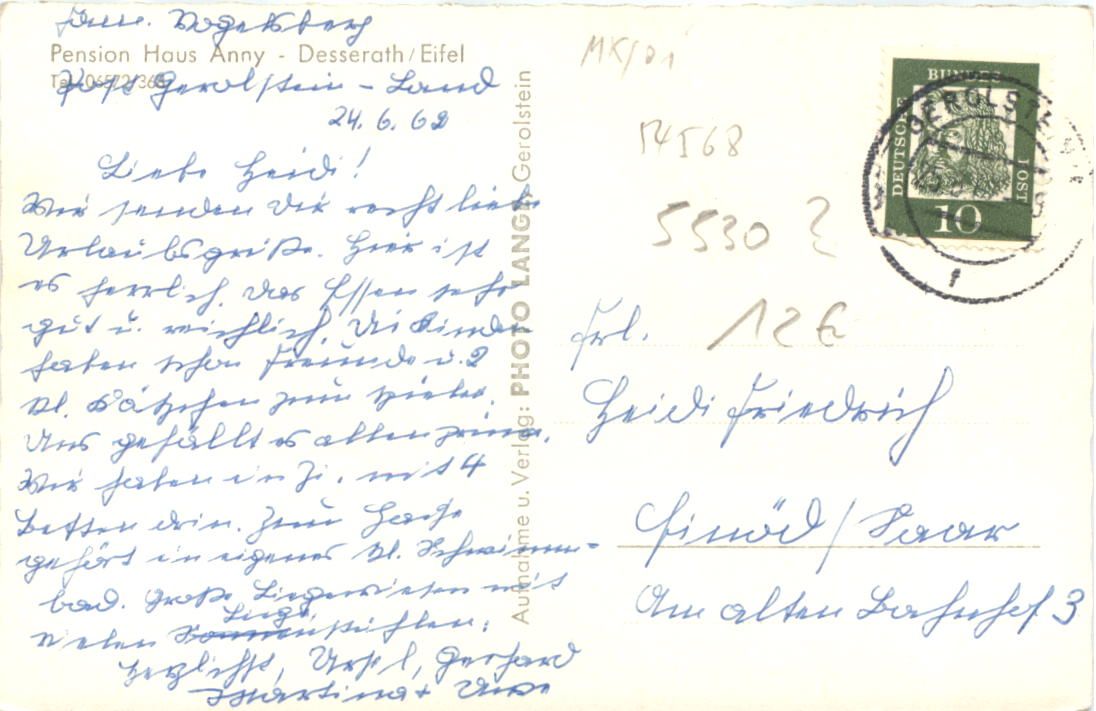 Fam. Vogelsberg
Pension Haus Anny - Desserath/Eifel
Tel. 06572/368
Post Gerolstein - Land
24. 6. 62
Liebe Heidi!
Wir senden Dir recht liebe
Urlaubsgrüße. Hier ist
es herrlich, das Essen sehr
gut u. reichlich. Die Kinder
haben schon Freunde u. 2
kl. Kätzchen zum spielen.
Uns gefällt es allen prima.
Wir haben ein Zi. mit 4
Betten drin. Zum Hause
gehört ein eigenes kl. Schwimm-
bad. Große Liegewiesen mit
Liege
vielen Sonnenstühlen.
Herzlichst, Ursel, Gerhard
Martina + Uwe
Aufnahme u. Verlag: PHOTO LANGE Gerolstein
MK/D1
54568
5530 2
12 €
DEUTSCHE BUNDESPOST
10
GEROLSTEIN
f
Frl.
Heidi Friedrich
Einöd/Saar
Am alten Bahnhof 3